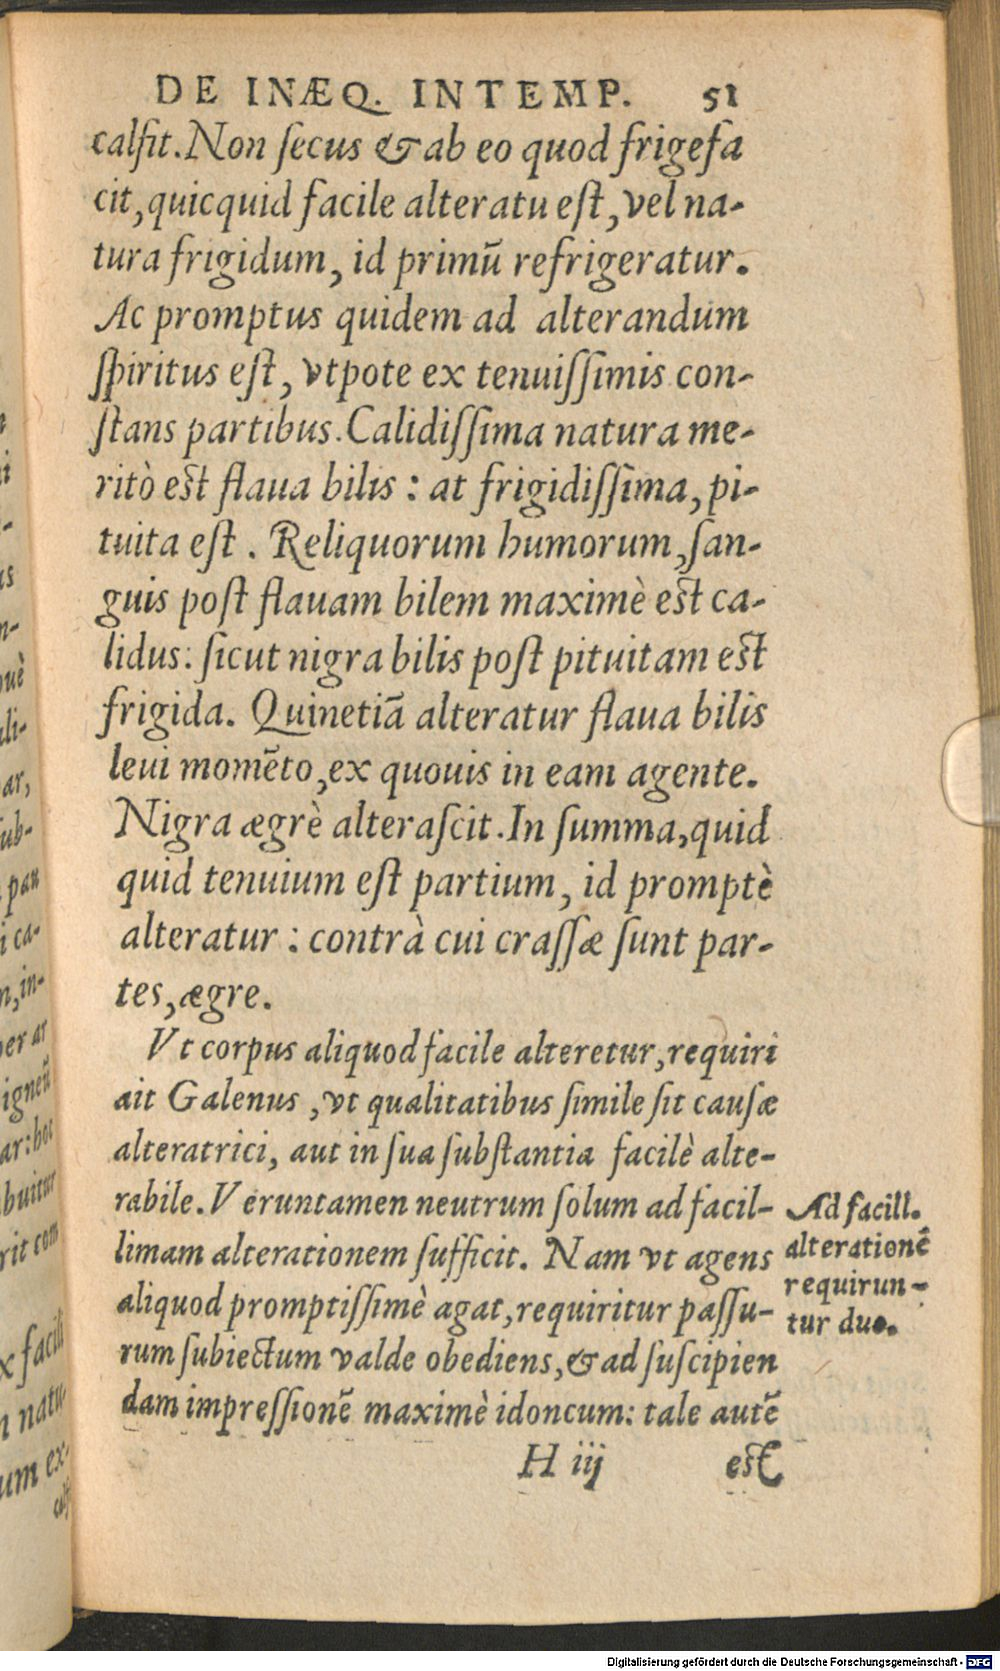 DE INÆQ. INTEMP. 51
calfit. Non secus & ab eo quod frigefa
cit, quicquid facile alteratu est, vel na-
tura frigidum, id primũ refrigeratur.
Ac promptus quidem ad alterandum
spiritus est, vtpote ex tenuissimis con-
stans partibus. Calidissima natura me-
ritò est flaua bilis : at frigidissima, pi-
tuita est. Reliquorum humorum, san-
guis post flauam bilem maximè est ca-
lidus: sicut nigra bilis post pituitam est
frigida. Quinetiã alteratur flaua bilis
leui momẽto, ex quouis in eam agente.
Nigra ægrè alterascit. In summa, quid
quid tenuium est partium, id promptè
alteratur : contrà cui crassæ sunt par-
tes, ægre.
Vt corpus aliquod facile alteretur, requiri
ait Galenus, vt qualitatibus simile sit causæ
alteratrici, aut in sua substantia facilè alte-
rabile. Veruntamen neutrum solum ad facil-
limam alterationem sufficit. Nam vt agens
aliquod promptissimè agat, requiritur passu-
rum subiectum valde obediens, & ad suscipien
dam impressionẽ maximè idoncum: tale autẽ
Ad facill.
alterationẽ
requirun-
tur duo.
H iij est
Digitalisierung gefördert durch die Deutsche Forschungsgemeinschaft - DFG